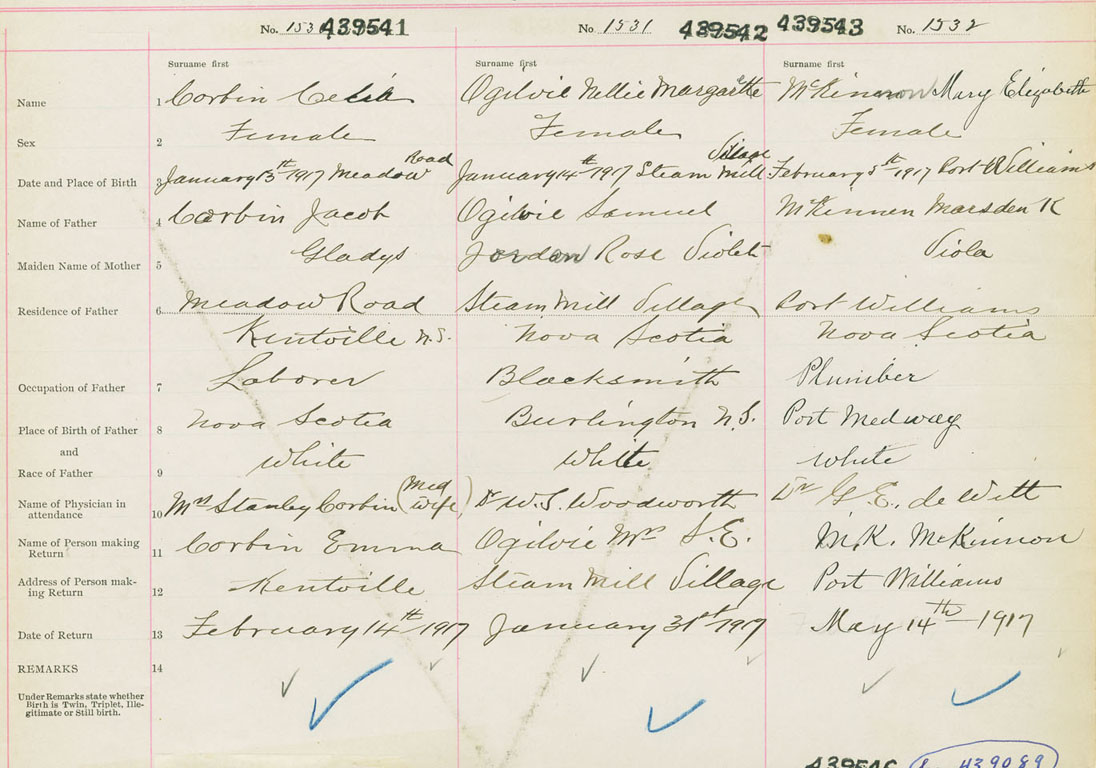 No. 1530 439541 No 1531 439542 439543 No. 1532
Surname first Surname first Surname first
Name 1 Corbin Celia Ogilvie Nellie Margarette McKinnon Mary Elizabeth
Sex 2 Female Female Female
Road Village
Date and Place of Birth 3 January 13th 1917 Meadow January 14th 1917 Steam Mill February 5th 1917 Port Williams
Name of Father 4 Corbin Jacob Ogilvie Samuel McKinnen Marsden K
Maiden Name of Mother 5 Gladys Jordan Rose Violet Viola
Residence of Father 6 Meadow Road Steam Mill Village Port Williams
Kentville N.S. Nova Scotia Nova Scotia
Occupation of Father 7 Laborer Blacksmith Plumber
Place of Birth of Father 8 Nova Scotia Burlington N.S. Port Medway
and
Race of Father 9 White White White
Name of Physician in attendance 10 Mrs Stanley Corbin (Med wife) Dr W.S. Woodworth Dr G.E. de Witt
Name of Person making Return 11 Corbin Emma Ogilvie Mrs S.E. M.K. McKinnon
Address of Person mak-ing Return 12 Kentville Steam Mill Village Port Williams
Date of Return 13 February 14th 1917 January 31st 1917 May 14th 1917
REMARKS 14
Under Remarks state whether
Birth is Twin, Triplet, Ille-
gitimate or Still birth.
439546 439089